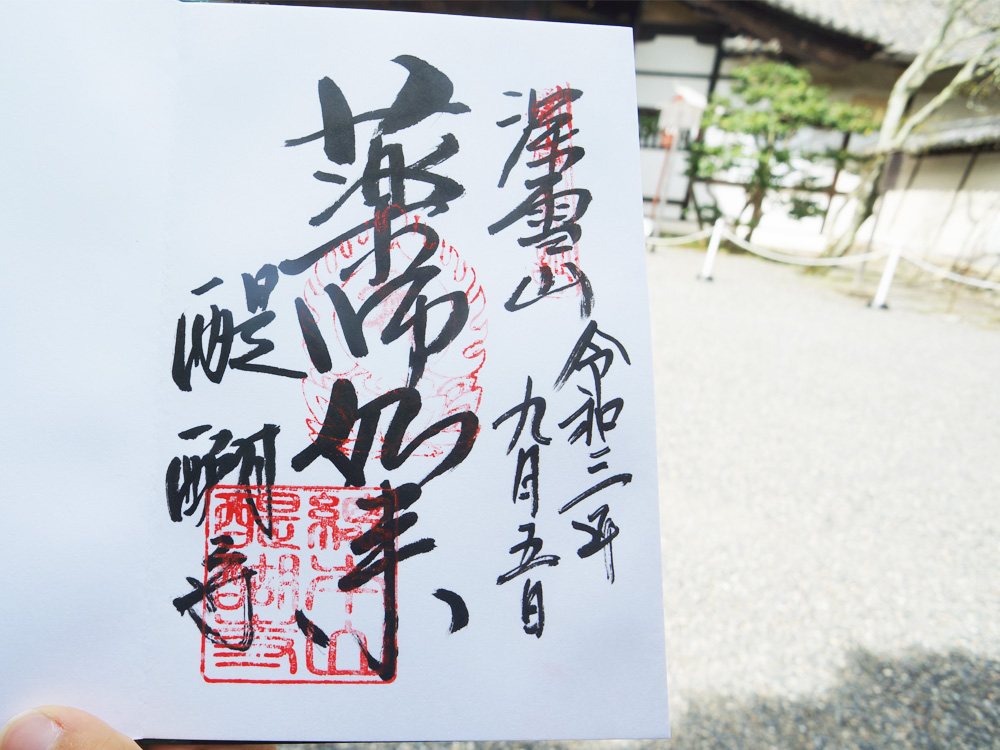 深雪山
令和三年
九月五日
薬師如来
醍醐寺
総本山
醍醐寺